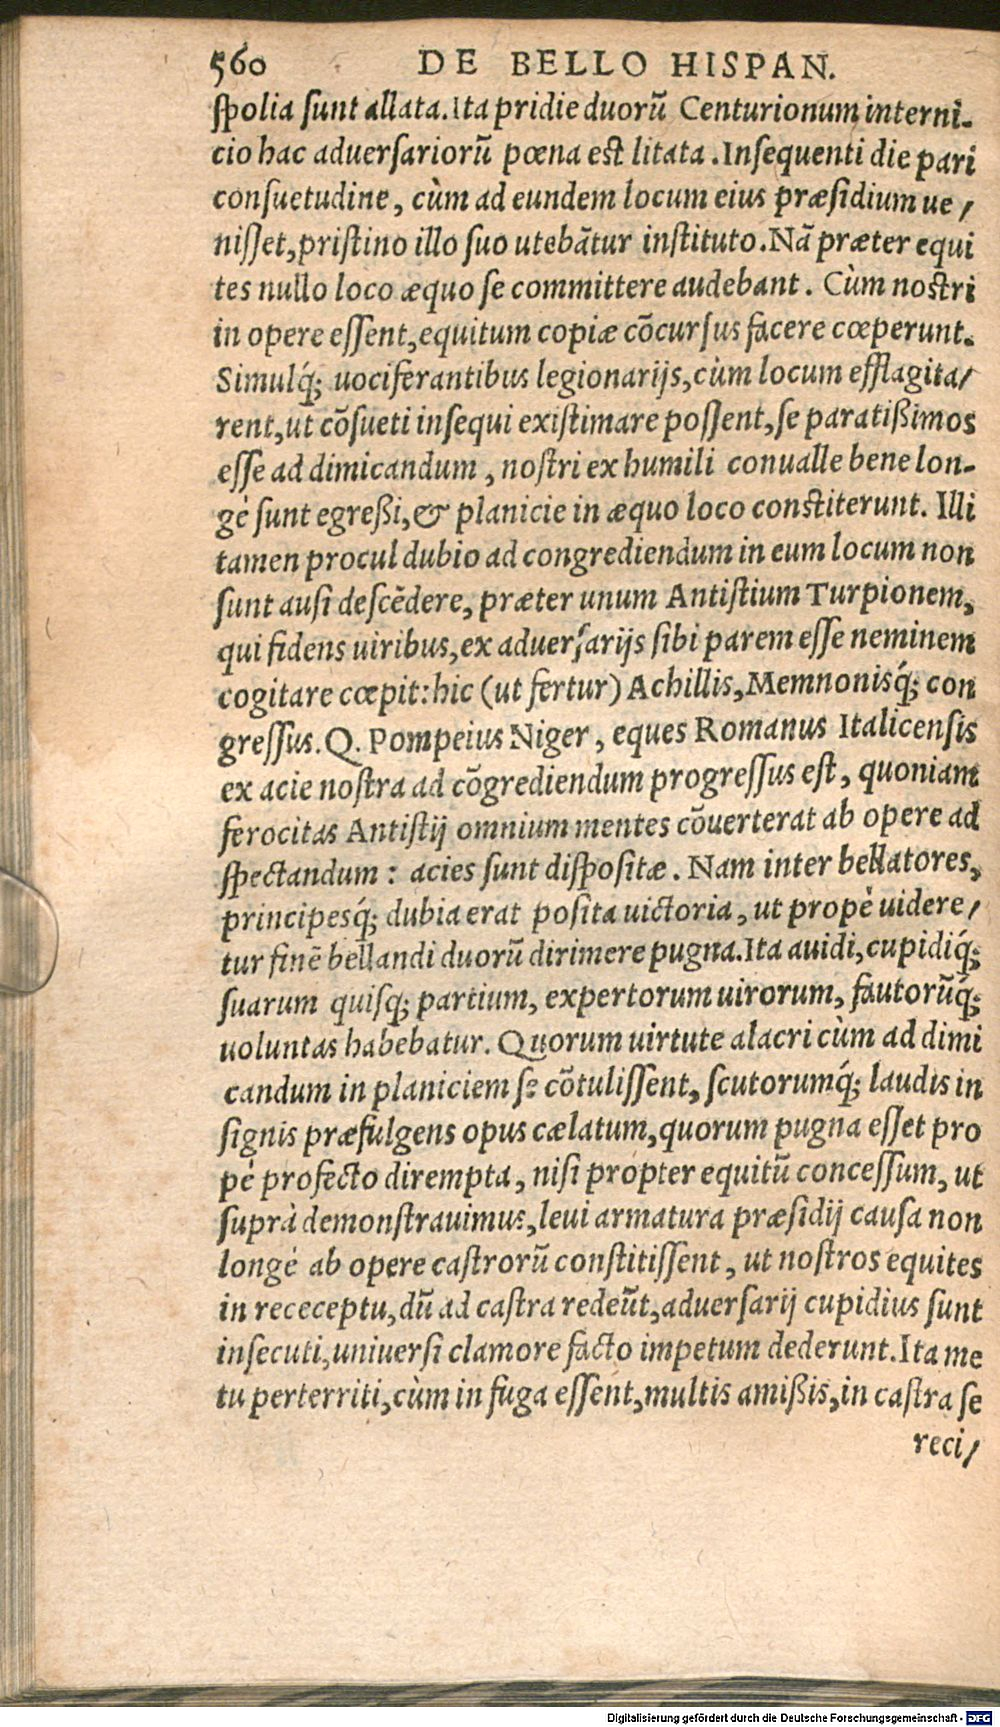 560 DE BELLO HISPAN.
ſpolia ſunt allata. Ita pridie duorũ Centurionum interni-
cio hac aduerſariorũ pœna est litata. Inſequenti die pari
conſuetudine, cùm ad eundem locum eius præſidium ue/
niſſet, priſtino illo ſuo utebãtur inſtituto. Nã præter equi
tes nullo loco æquo ſe committere audebant. Cùm noſtri
in opere eſſent, equitum copiæ cõcurſus facere cœperunt.
Simulq́; uociferantibus legionarijs, cùm locum efflagita/
rent, ut cõſueti inſequi exiſtimare poſſent, ſe paratißimos
eſſe ad dimicandum, noſtri ex humili conualle bene lon-
gè ſunt egreßi, & planicie in æquo loco conſtiterunt. Illi
tamen procul dubio ad congrediendum in eum locum non
ſunt auſi deſcẽdere, præter unum Antiſtium Turpionem,
qui fidens uiribus, ex aduerſarijs ſibi parem eſſe neminem
cogitare cœpit: hic (ut fertur) Achillis, Memnonisq́; con
greſſus. Q. Pompeius Niger, eques Romanus Italicenſis
ex acie noſtra ad cõgrediendum progreſſus eſt, quoniam
ferocitas Antiſtij omnium mentes cõuerterat ab opere ad
ſpectandum: acies ſunt diſpoſitæ. Nam inter bellatores,
principesq́; dubia erat poſita uictoria, ut propè uidere/
tur finẽ bellandi duorũ dirimere pugna. Ita auidi, cupidiq́;
ſuarum quiſq; partium, expertorum uirorum, fautorũq́;
uoluntas habebatur. Quorum uirtute alacri cùm ad dimi
candum in planiciem ſe cõtuliſſent, ſcutorumq́; laudis in
ſignis præfulgens opus cælatum, quorum pugna eſſet pro
pè profecto dirempta, niſi propter equitũ conceſſum, ut
ſuprà demonſtrauimus, leui armatura præſidij cauſa non
longè ab opere caſtrorũ conſtitiſſent, ut noſtros equites
in receceptu, dũ ad caſtra redeũt, aduerſarij cupidius ſunt
inſecuti, uniuerſi clamore facto impetum dederunt. Ita me
tu perterriti, cùm in fuga eſſent, multis amißis, in caſtra ſe
reci/
Digitalisierung gefördert durch die Deutsche Forschungsgemeinschaft - DFG